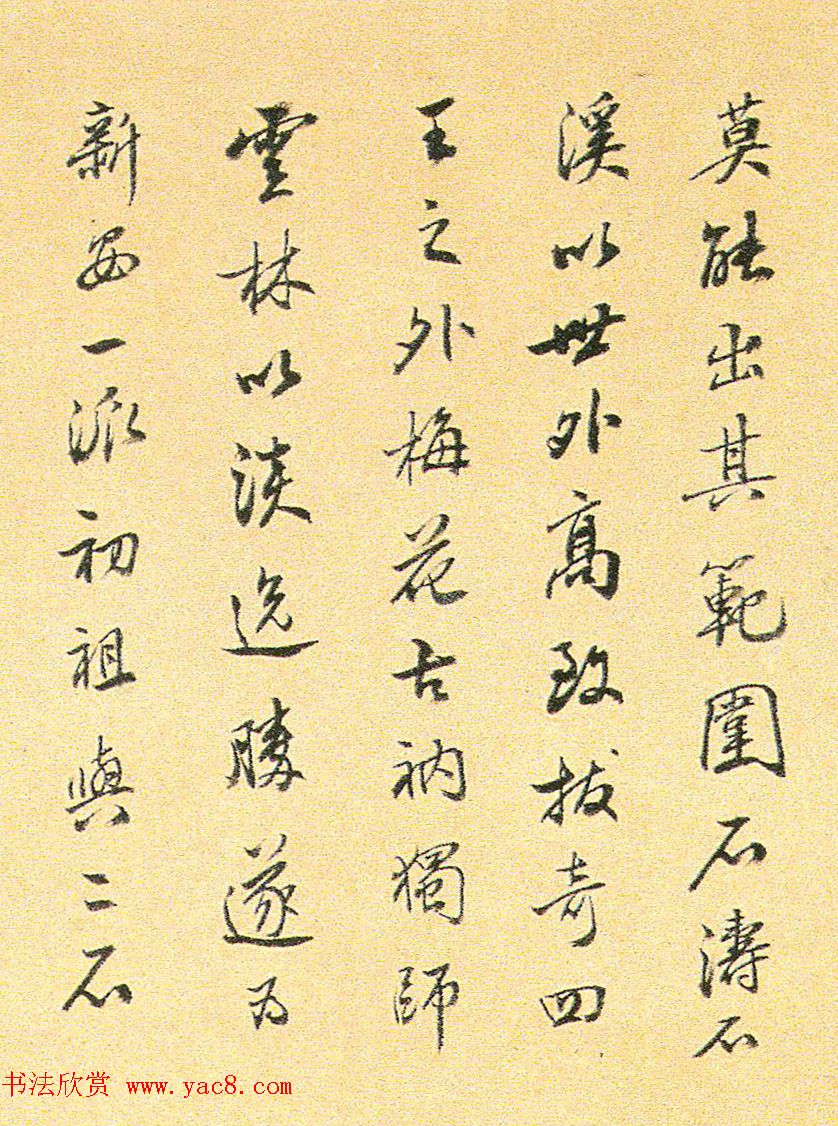 莫能出其範圍石濤石
溪以世外高致拔奇四
王之外梅花古衲獨師
雲林以淡逸勝遂为
新安一派初祖與二石
书法欣赏 www.yac8.com